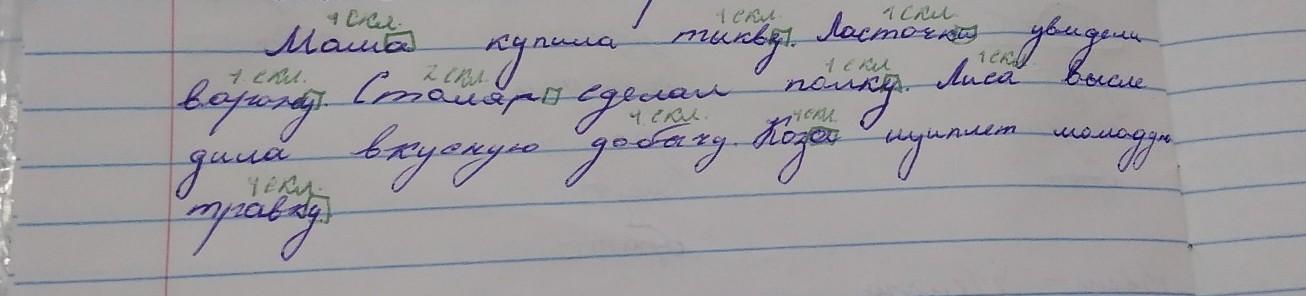 1 скл. 1 скл. 1 скл.
Мама купила тыкву. Ласточки увидели
1 скл. 2 скл. 1 скл. 1 скл.
ворону. Столяр сделал полку. Лиса высле
1 скл. 1 скл.
дила вкусную добычу. Коза щиплет молодую
1 скл.
травку.